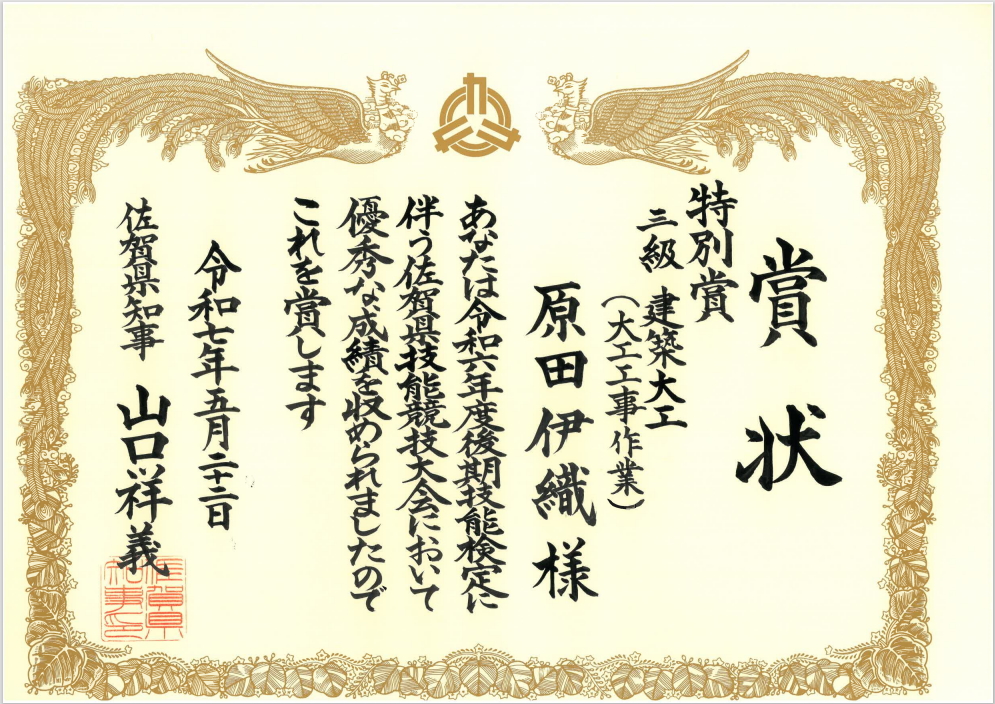 賞状
特別賞
三級 建築大工
（大工工事作業）
原田伊織様
あなたは令和六年度後期技能検定に
伴う佐賀県技能競技大会において
優秀な成績を収められましたので
これを賞します
令和七年五月二十二日
佐賀県知事 山口祥義
佐賀県
知事之印